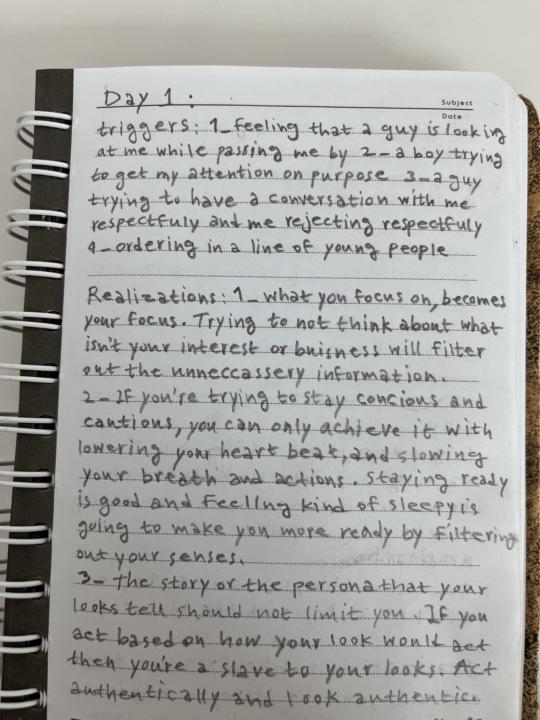 Day 1 :
Subject
Date
triggers: 1_feeling that a guy is looking
at me while passing me by 2_a boy trying
to get my attention on purpose 3_a guy
trying to have a conversation with me
respectfuly and me rejecting respectfuly
4_ordering in a line of young people
Realizations: 1_ what you focus on, becomes
your focus. Trying to not think about what
isn't your interest or buisness will filter
out the unneccassery information.
2_If you're trying to stay concious and
cautious, you can only achieve it with
lowering your heart beat, and slowing
your breath and actions. Staying ready
is good and feeling kind of sleepy is
going to make you more ready by filtering
out your senses.
3_ the story or the persona that your
looks tell should not limit you. If you
act based on how your look would act
then you're a slave to your looks. Act
authentically and look authentic.